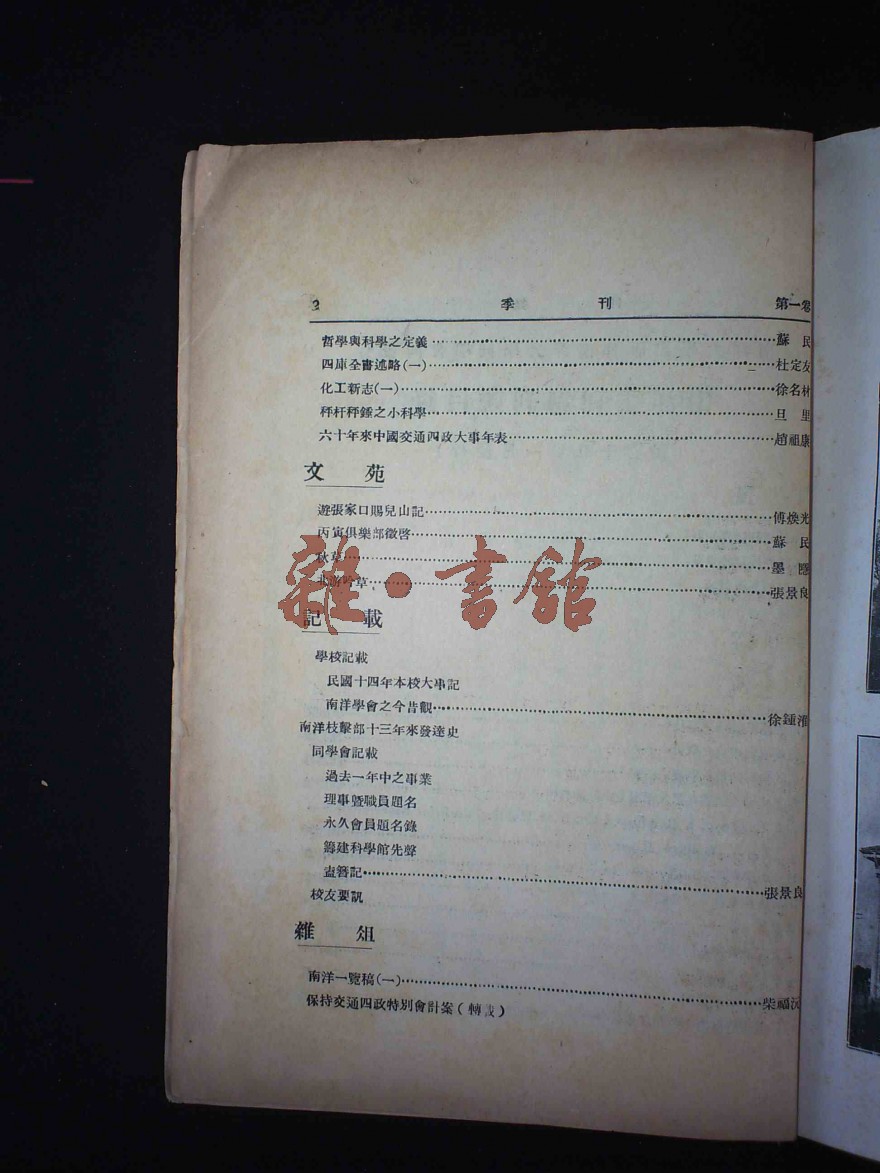 2 季刊 第一卷
哲學與科學之定義 蘇民
四庫全書述略(一) 杜定友
化工新志(一) 徐名材
秤杆秤錘之小科學 旦里
六十年來中國交通四政大事年表 趙祖康
文苑
遊張家口賜兒山記 傅煥光
丙寅俱樂部徵啓 蘇民
秋草 墨
草 張景良
雜·書館
記載
學校記載
民國十四年本校大事記
南洋學會之今昔觀 徐鍾淮
南洋技擊部十三年來發達史
同學會記載
過去一年中之事業
理事曁職員題名
永久會員題名錄
籌建科學館先聲
盍簪記 張景良
校友要訊
雜俎
南洋一覽稿(一) 柴福沅
保持交通四政特別會計案(轉載)